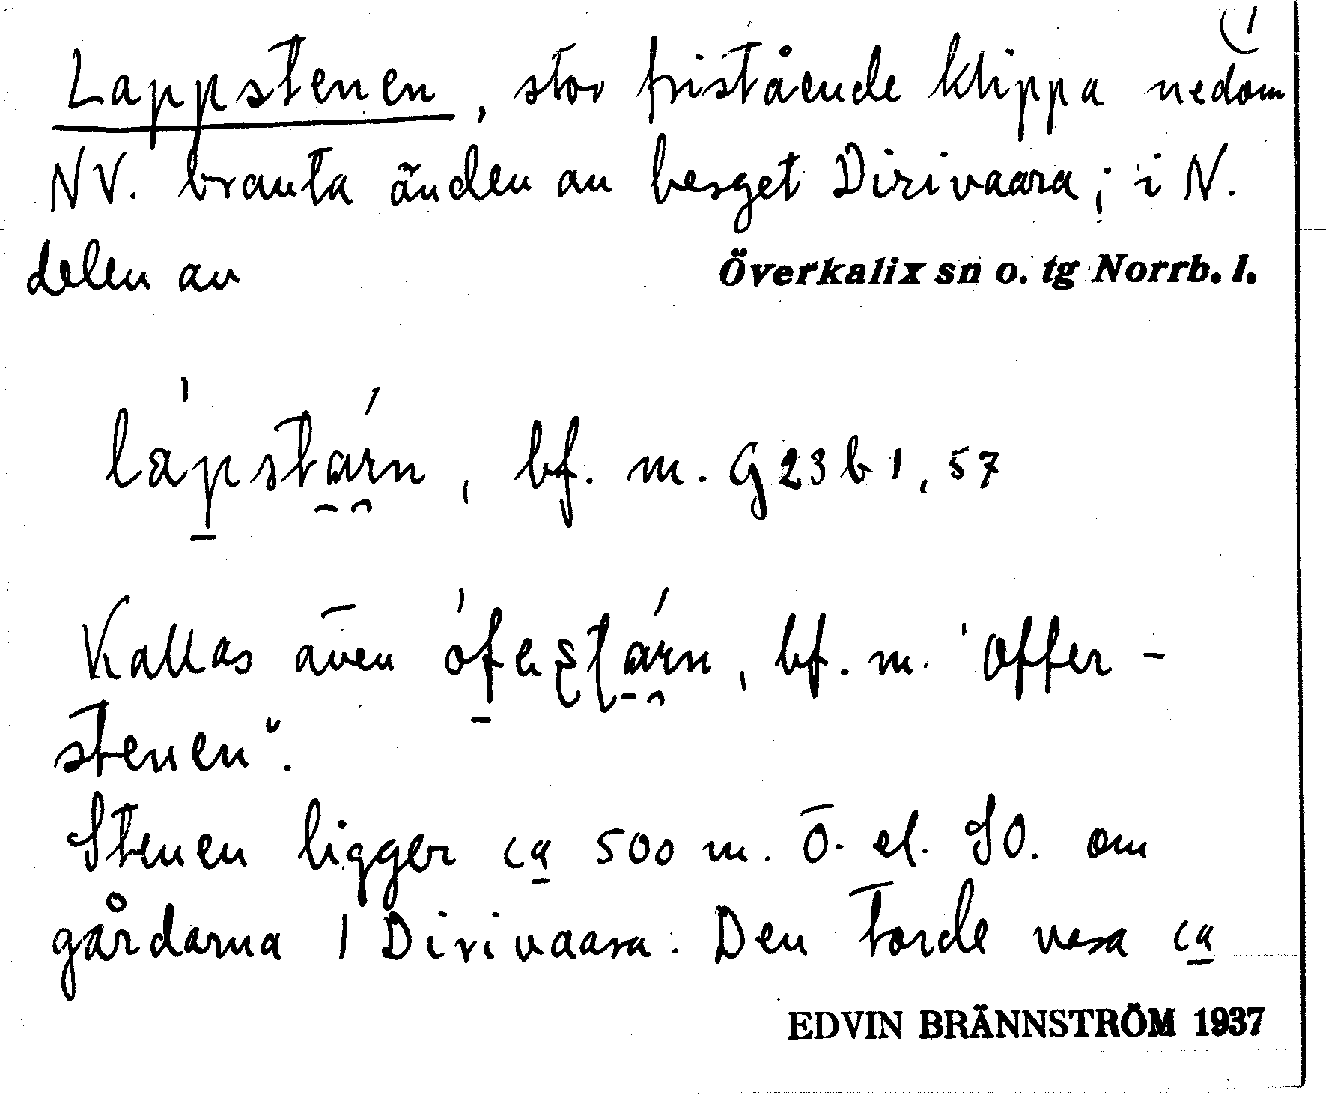 (1
Lappstenen, stor fristående klippa nedom
NV. branta änden av berget Dirivaara; i N.
delen av Överkalix sn o. tg Norrb. l.
lápstárn, bf. m. G 23 b 1, 57
Kallas även ófastárn, bf. m. "Offer-
stenen".
Stenen ligger ca 500 m. Ö. el. SO. om
gårdarna i Dirivaara. Den torde vara ca
EDVIN BRÄNNSTRÖM 1937